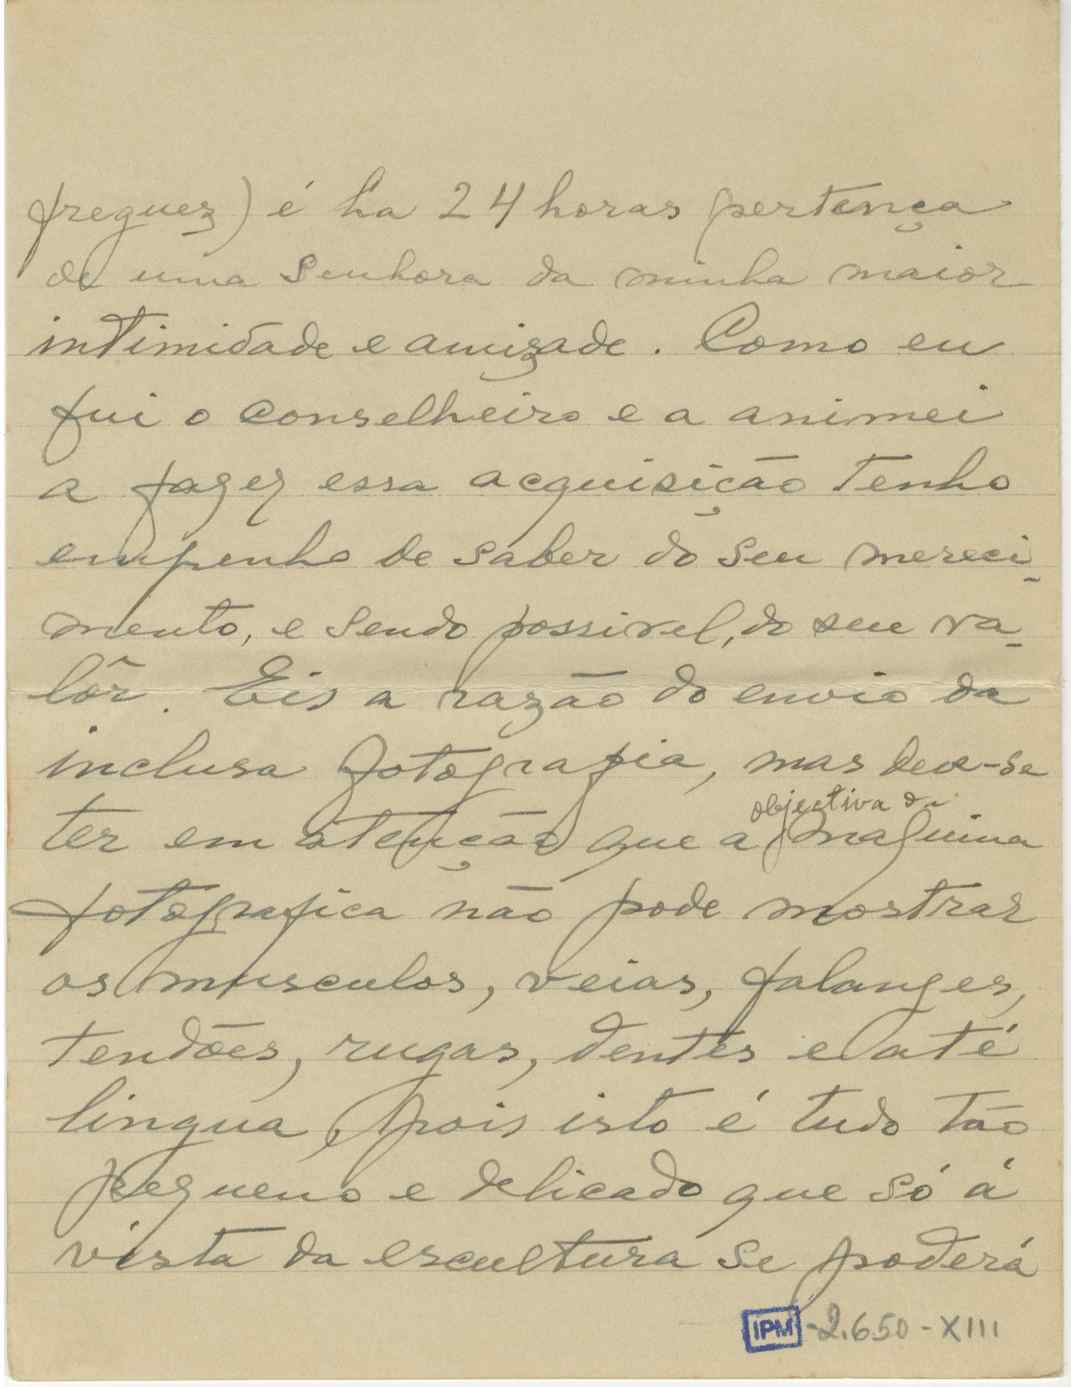 freguez) é ha 24 horas pertença
de uma Senhora da minha maior
intimidade e amizade. Como eu
fui o conselheiro e a animei
a fazer essa acquisição tenho
empenho de saber do seu mereci-
mento, e sendo possivel, do seu va-
lôr. Eis a razão do envio da
inclusa fotografia, mas deve-se
objectiva da
ter em atenção que a maquina
fotografica não pode mostrar
os musculos, veias, falanges,
tendões, rugas, dentes e até
lingua, pois isto é tudo tão
pequeno e delicado que só á
vista da escultura se poderá
IPM -2.650-XIII